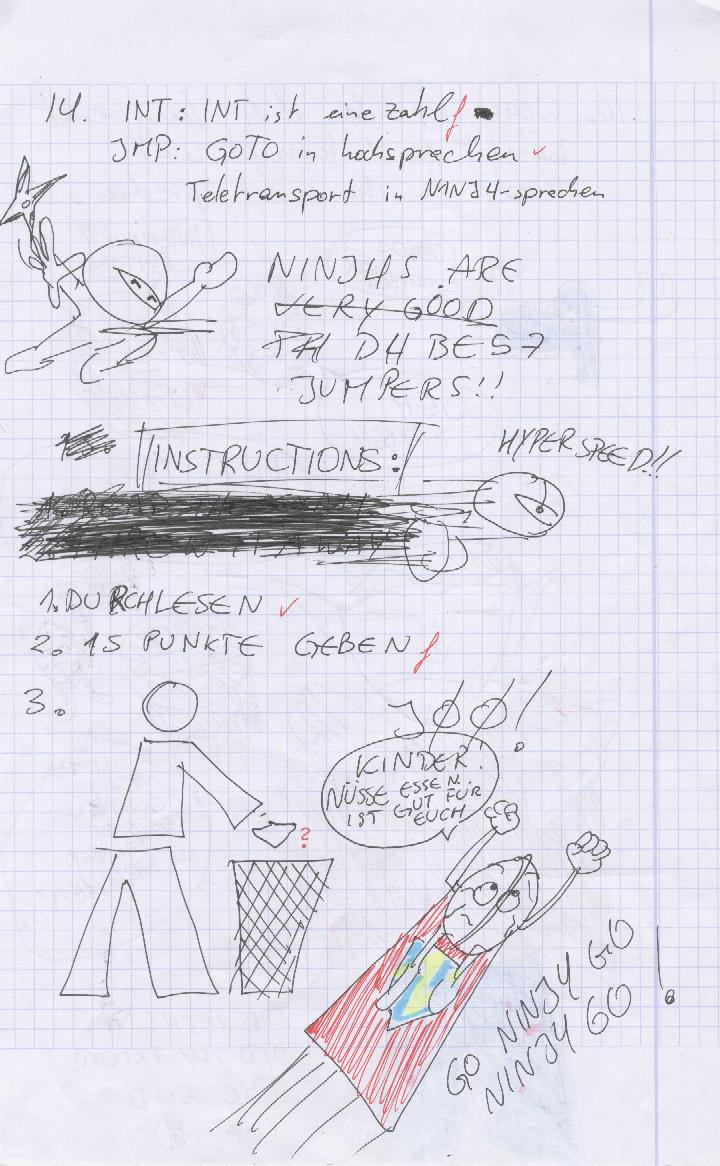 14. INT: INT ist eine Zahl
JMP: GOTO in hochsprachen
Teletransport in NINJ4-sprechen
NINJ4S ARE
VERY GOOD
TH D4 BES7
JUMPERS!!
INSTRUCTIONS:
HYPERSPEED!!
1. DURCHLESEN
2. 15 PUNKTE GEBEN
3.
?
JØØ!
KINDER!
NÜSSE ESSEN
IST GUT FÜR
EUCH
GO NINJ4 GO
NINJ4 GO!